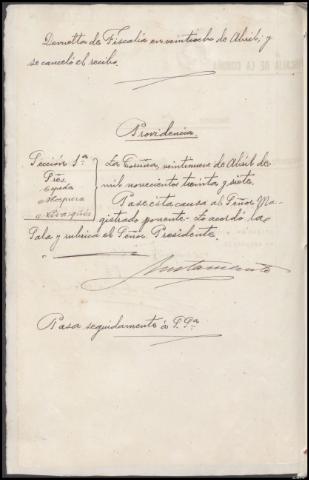 Devuelta de Fiscalía en veintiocho de Abril; y
se canceló el recibo.
Providencia.
Sección 1ª
Sres.
Cepeda
La Coruña, veintinueve de Abril de
mil novecientos treinta y siete.
Pase esta causa al Señor Ma-
gistrado ponente. Lo acordó la
Sala y rubrica el Señor Presidente.
Pasa seguidamente á S. Sª
FISCALÍA DE LA CORUÑA